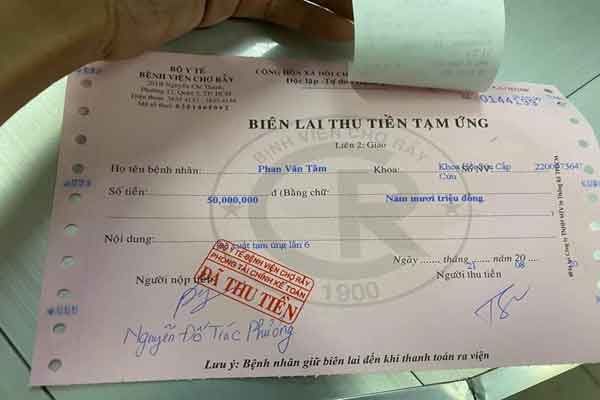 BỘ Y TẾ
BỆNH VIỆN CHỢ RẪY
201B Nguyễn Chí Thanh,
Phường 12, Quận 5, TP. HCM
Điện thoại:
Mã số thuế
CỘNG HÒA XÃ HỘI
Độc lập - Tự do
BIÊN LAI THU TIỀN TẠM ỨNG
Liên 2: Giao
BỆNH VIỆN CHỢ RẪY
Họ tên bệnh nhân: Phan Văn Tâm Khoa: Cấp Cứu
Số tiền: 50,000,000 đ (Bằng chữ: Năm mươi triệu đồng.
Nội dung: tạm ứng lần 6
BỘ Y TẾ-BỆNH VIỆN CHỢ RẪY
PHÒNG TÀI CHÍNH KẾ TOÁN
ĐÃ THU TIỀN
CR
1900
Ngày ....... tháng ....... năm 20 ....
21 08 20
Người nộp tiền
Người thu tiền
Nguyễn Đỗ Trúc Phương
Lưu ý: Bệnh nhân giữ biên lai đến khi thanh toán ra viện